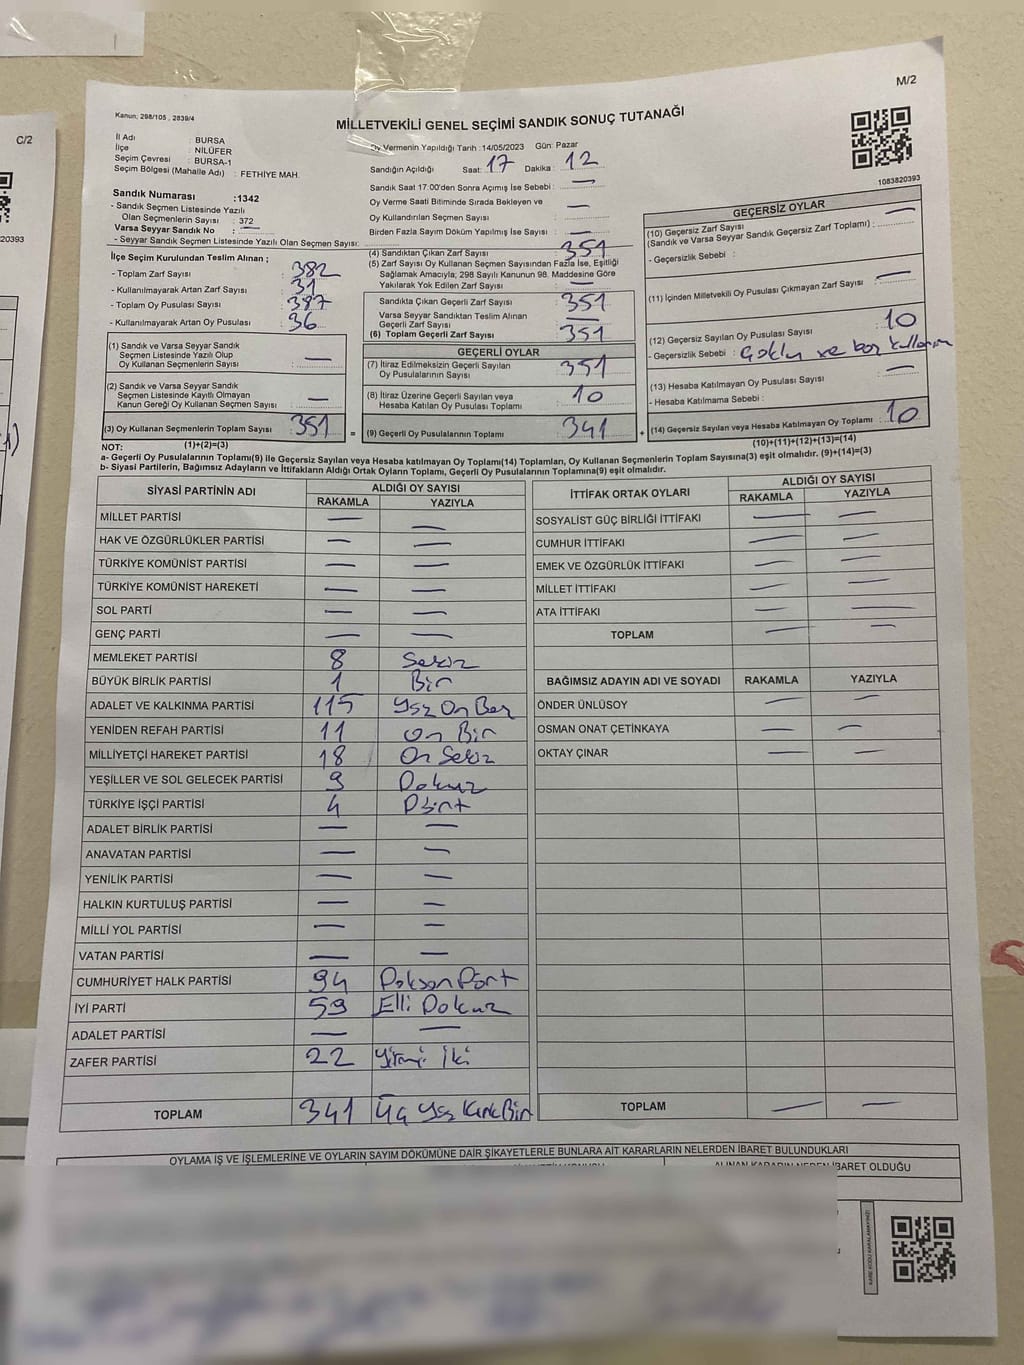 C/2
20393
M/2
Kanun: 298/105 , 2839/4
MİLLETVEKİLİ GENEL SEÇİMİ SANDIK SONUÇ TUTANAĞI
İl Adı : BURSA
İlçe : NİLÜFER
Seçim Çevresi : BURSA-1
Seçim Bölgesi (Mahalle Adı) : FETHİYE MAH.
Sandık Numarası :1342
- Sandık Seçmen Listesinde Yazılı
Olan Seçmenlerin Sayısı : 372
Varsa Seyyar Sandık No : —
- Seyyar Sandık Seçmen Listesinde Yazılı Olan Seçmen Sayısı:
Oy Vermenin Yapıldığı Tarih :14/05/2023 Gün: Pazar
Sandığın Açıldığı Saat: 17 Dakika : 12
Sandık Saat 17:00'den Sonra Açımış İse Sebebi : —
Oy Verme Saati Bitiminde Sırada Bekleyen ve
Oy Kullandırılan Seçmen Sayısı : —
Birden Fazla Sayım Döküm Yapılmış İse Sayısı : —
1083820393
İlçe Seçim Kurulundan Teslim Alınan ;
- Toplam Zarf Sayısı : 382
- Kullanılmayarak Artan Zarf Sayısı : 31
- Toplam Oy Pusulası Sayısı : 387
- Kullanılmayarak Artan Oy Pusulası : 36
(1) Sandık ve Varsa Seyyar Sandık
Seçmen Listesinde Yazılı Olup
Oy Kullanan Seçmenlerin Sayısı : —
(2) Sandık ve Varsa Seyyar Sandık
Seçmen Listesinde Kayıtlı Olmayan
Kanun Gereği Oy Kullanan Seçmen Sayısı : —
(3) Oy Kullanan Seçmenlerin Toplam Sayısı : 351
(4) Sandıktan Çıkan Zarf Sayısı : 351
(5) Zarf Sayısı Oy Kullanan Seçmen Sayısından Fazla İse, Eşitliği
Sağlamak Amacıyla; 298 Sayılı Kanunun 98. Maddesine Göre
Yakılarak Yok Edilen Zarf Sayısı : —
Sandıkta Çıkan Geçerli Zarf Sayısı : 351
Varsa Seyyar Sandıktan Teslim Alınan
Geçerli Zarf Sayısı : —
(6) Toplam Geçerli Zarf Sayısı : 351
GEÇERLİ OYLAR
(7) İtiraz Edilmeksizin Geçerli Sayılan
Oy Pusulalarının Sayısı : 351
(8) İtiraz Üzerine Geçerli Sayılan veya
Hesaba Katılan Oy Pusulası Toplamı : 10
= (9) Geçerli Oy Pusulalarının Toplamı : 341 +
GEÇERSİZ OYLAR
(10) Geçersiz Zarf Sayısı
(Sandık ve Varsa Seyyar Sandık Geçersiz Zarf Toplamı) : —
- Geçersizlik Sebebi :
(11) İçinden Milletvekili Oy Pusulası Çıkmayan Zarf Sayısı : —
(12) Geçersiz Sayılan Oy Pusulası Sayısı : 10
- Geçersizlik Sebebi : Çoklu ve boş kullanım
(13) Hesaba Katılmayan Oy Pusulası Sayısı : —
- Hesaba Katılmama Sebebi :
(14) Geçersiz Sayılan veya Hesaba Katılmayan Oy Toplamı : 10
NOT: (1)+(2)=(3) (10)+(11)+(12)+(13)=(14)
a- Geçerli Oy Pusulalarının Toplamı(9) ile Geçersiz Sayılan veya Hesaba Katılmayan Oy Toplamı(14) Toplamları, Oy Kullanan Seçmenlerin Toplam Sayısına(3) eşit olmalıdır. (9)+(14)=(3)
b- Siyasi Partilerin, Bağımsız Adayların ve İttifakların Aldığı Ortak Oyların Toplamı, Geçerli Oy Pusulalarının Toplamına(9) eşit olmalıdır.
SİYASİ PARTİNİN ADI ALDIĞI OY SAYISI
RAKAMLA YAZIYLA
MİLLET PARTİSİ — —
HAK VE ÖZGÜRLÜKLER PARTİSİ — —
TÜRKİYE KOMÜNİST PARTİSİ — —
TÜRKİYE KOMÜNİST HAREKETİ — —
SOL PARTİ — —
GENÇ PARTİ — —
MEMLEKET PARTİSİ 8 Sekiz
BÜYÜK BİRLİK PARTİSİ 1 Bir
ADALET VE KALKINMA PARTİSİ 115 Yüz On Beş
YENİDEN REFAH PARTİSİ 11 On Bir
MİLLİYETÇİ HAREKET PARTİSİ 18 On Sekiz
YEŞİLLER VE SOL GELECEK PARTİSİ 9 Dokuz
TÜRKİYE İŞÇİ PARTİSİ 4 Dört
ADALET BİRLİK PARTİSİ — —
ANAVATAN PARTİSİ — —
YENİLİK PARTİSİ — —
HALKIN KURTULUŞ PARTİSİ — —
MİLLİ YOL PARTİSİ — —
VATAN PARTİSİ — —
CUMHURİYET HALK PARTİSİ 94 Doksan Dört
İYİ PARTİ 59 Elli Dokuz
ADALET PARTİSİ — —
ZAFER PARTİSİ 22 Yirmi İki
TOPLAM 341 Üç Yüz Kırk Bir
İTTİFAK ORTAK OYLARI ALDIĞI OY SAYISI
RAKAMLA YAZIYLA
SOSYALİST GÜÇ BİRLİĞİ İTTİFAKI — —
CUMHUR İTTİFAKI — —
EMEK VE ÖZGÜRLÜK İTTİFAKI — —
MİLLET İTTİFAKI — —
ATA İTTİFAKI — —
TOPLAM — —
BAĞIMSIZ ADAYIN ADI VE SOYADI RAKAMLA YAZIYLA
ÖNDER ÜNLÜSOY — —
OSMAN ONAT ÇETİNKAYA — —
OKTAY ÇINAR — —
TOPLAM — —
OYLAMA İŞ VE İŞLEMLERİNE VE OYLARIN SAYIM DÖKÜMÜNE DAİR ŞİKAYETLERLE BUNLARA AİT KARARLARIN NELERDEN İBARET BULUNDUKLARI
ALINAN KARARIN NEDEN İBARET OLDUĞU
KARE KODU KARALAMAYINIZ!